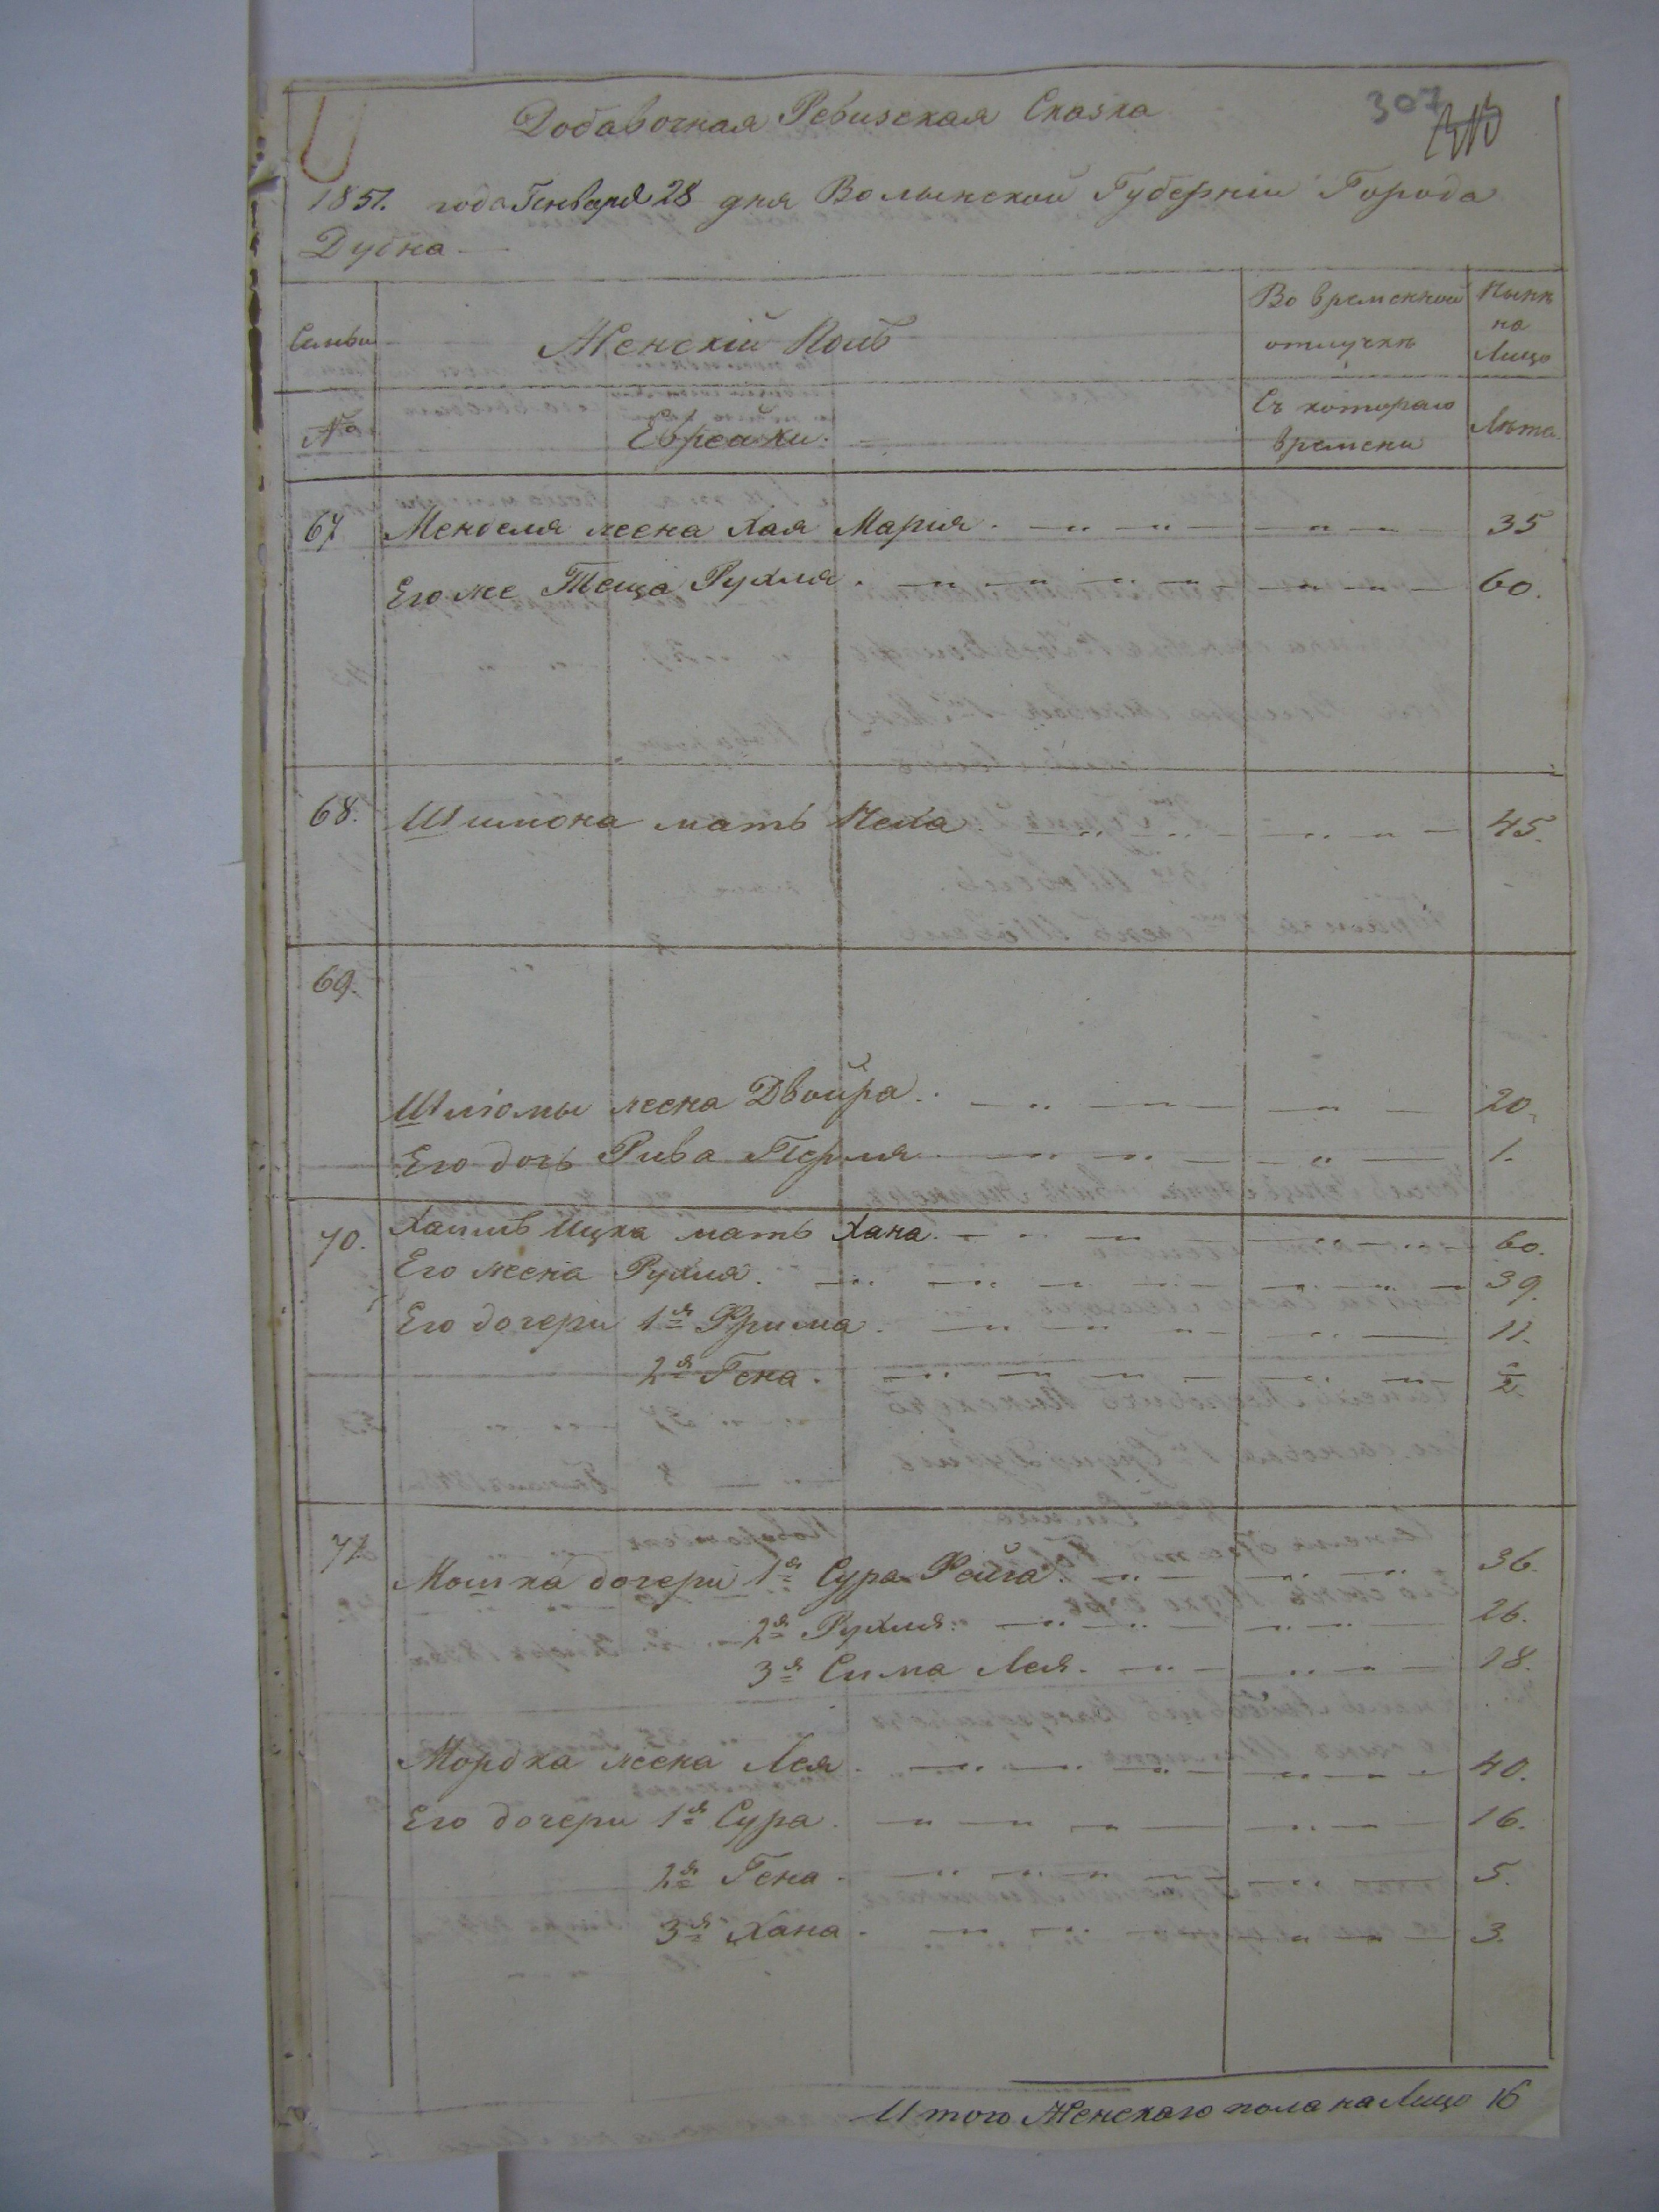 307
Добавочная Ревизская Сказка
1851. года Генваря 28 дня Волынской Губерніи Города
Дубна
Семьи
Женскій Полъ
Во временной отлучкѣ
Нынѣ на Лицо
№
Евреаки.
Съ котораго времени
Лѣта.
67 Менделя жена Хая Мария. 35
Его же Теща Рухля. 60.
68. Шимона мать Неха 45.
69.
Шліомы жена Двойра. 20.
Его дочь Рива Перля 1.
70. Хаимъ Ицка мать Хана. 60.
Его жена Рухля. 39.
Его дочери 1я Фрима. 11.
2я Гена. 2
71. Мошка дочери 1я Сура Фейга. 36.
2я Рухля. 26.
3я Сима Лея. 18.
Мордка жена Лея. 40.
Его дочери 1я Сура. 16.
2я Гена. 5.
3я Хана. 3.
Итого Женскаго пола на Лицо 16